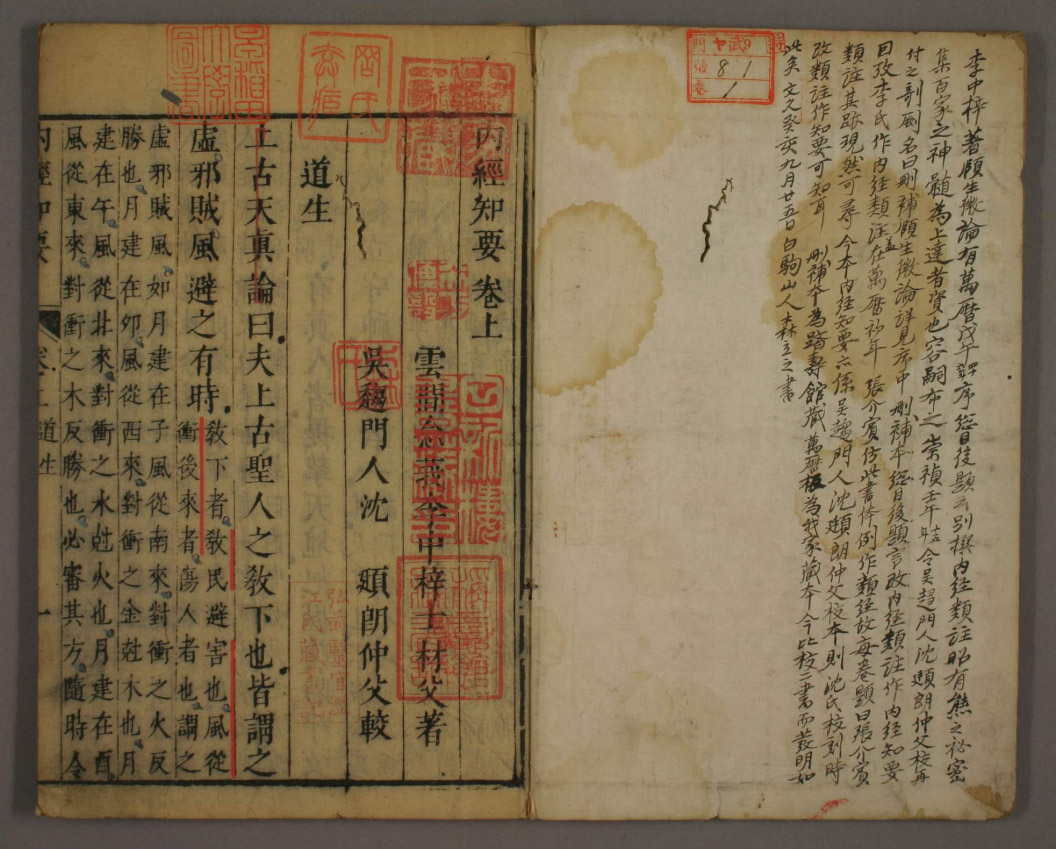 李中梓著頤生微論有萬曆戊午自序總目後題云別撰内經類註昭有熊之祕密
集百家之神髓為上達者資也容嗣布之崇禎壬午年令吳趨門人沈頲朗仲父校再
付之剞劂名曰刪補頤生微論詳見序中刪補本總目後題言改内經類註作内經知要
曰攷李氏作内經類註在萬曆初年張介賓仿此書体例作類經故每卷題曰張介賓
類註其跡現然可尋今本内經知要亦係吳趨門人沈頲朗仲父校本則沈氏校刻時
改類註作知要可知耳刪補本為躋壽館藏萬曆板為我家藏本今比校二書而發明如
此矣文久癸亥九月廿五日白駒山人森立之書
8 1
1
内經知要卷上
雲間念莪李中梓士材父著
吳趨門人沈頲朗仲父較
道生
上古天真論曰夫上古聖人之教下也皆謂之
虛邪賊風避之有時教下者教民避害也風從
衝後來者傷人者也謂之
虛邪賊風如月建在子風從南來對衝之火反
勝也月建在卯風從西來對衝之金尅木也月
建在午風從北來對衝之水尅火也月建在酉
風從東來對衝之木反勝也必審其方隨時令
内經知要
卷上道生
一